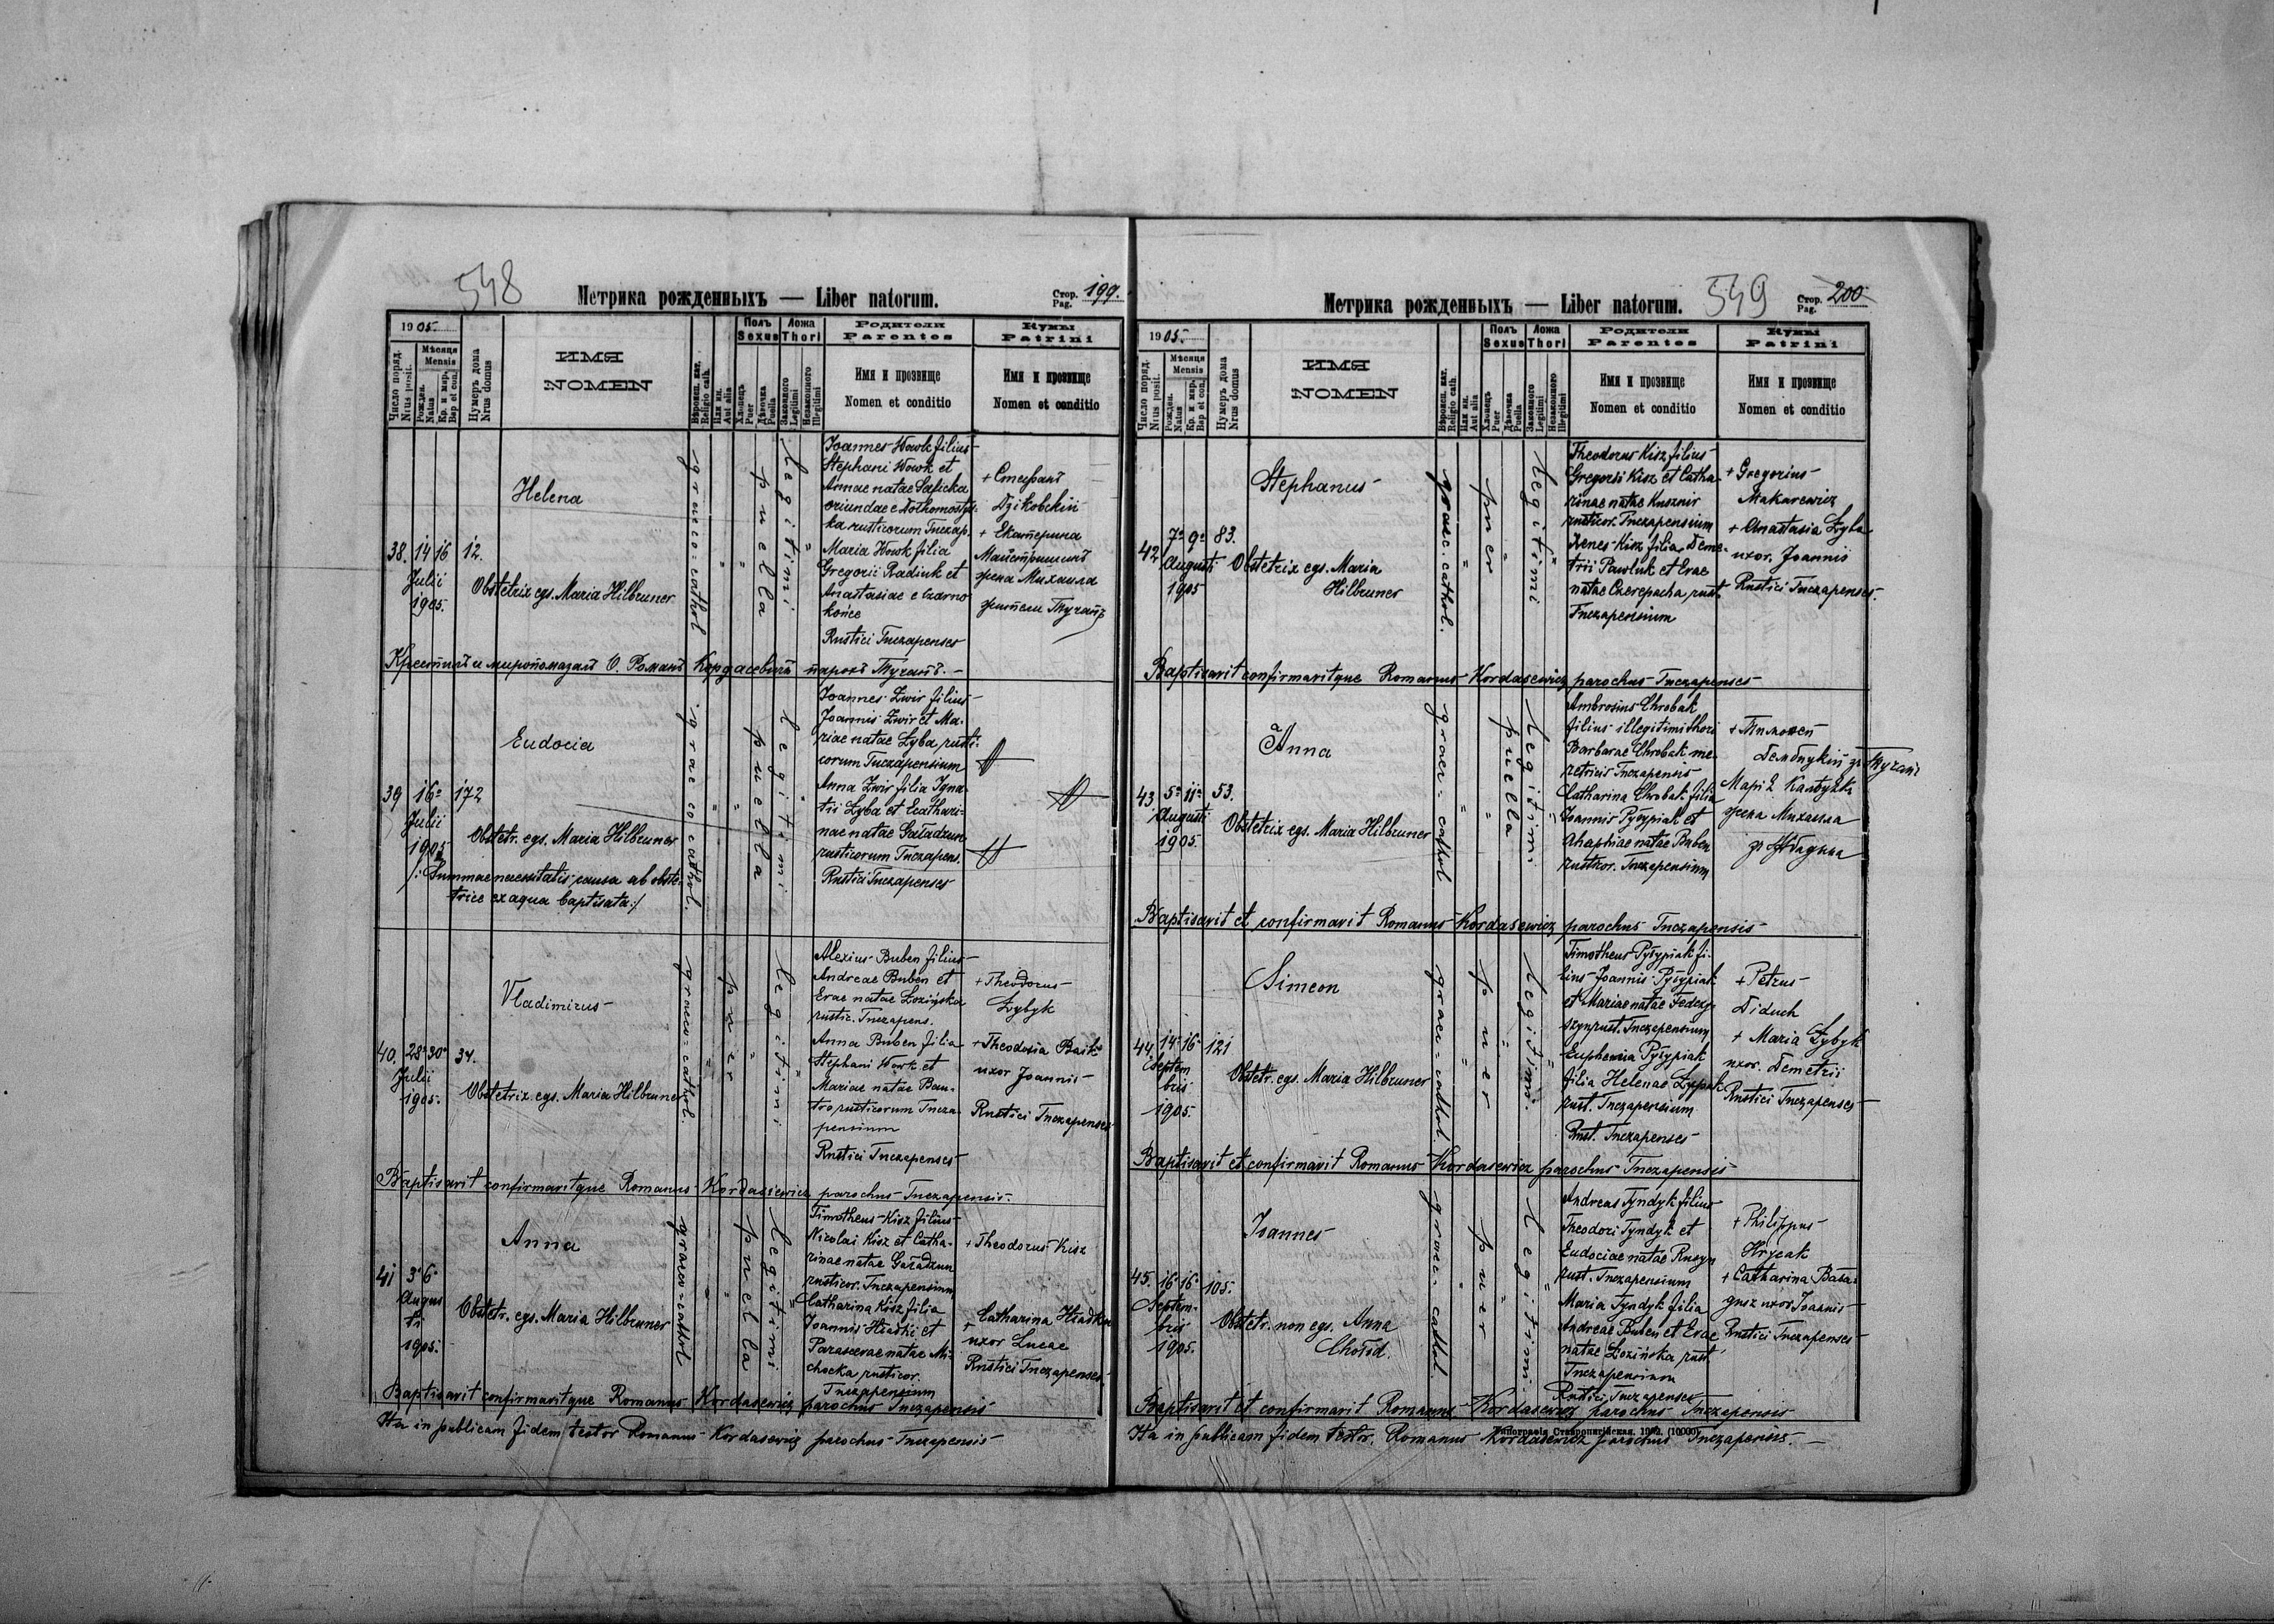 548
Метрика рожденныхъ — Liber natorum.
Стор. Pag. 199.
1905.
Число поряд. Nrus posit.
Мѣсяця Mensis
Рожден. Natus
Кр. и мир. Bap et con.
Нумеръ дома Nrus domus
ИМЯ
NOMEN
Вѣроисп. кат. Religio cath.
Или ин. Aut alia
Полъ Sexus
Хлопецъ Puer
Дѣвочка Puella
Ложа Thori
Законного Legitimi
Незаконного Illegitimi
Родители
Parentes
Имя и прозвище
Nomen et conditio
Кумы
Patrini
Имя и прозвище
Nomen et conditio
38. 14 16 12.
Julii
1905.
Helena
Obstetrix egs. Maria Hilbruner
graeco=cathol
puella
legitimi
Joannes Wowk filius
Stephani Wowk et
Annae natae
oriundae e
rusticorum Tuczap.
Maria Wowk filia
Gregorii Radiuk et
Anastasiae e Czarno
końce
Rustici Tuczapenses
+ Стефанъ
Дзіковскій
+ Екатерина
жена Михаила
жители Тучапъ
Крестилъ и миропомазалъ О. Романъ Кордасевичъ парохъ Тучапъ.
39 16 172
Julii
1905
Eudocia
Obstetr. egs. Maria Hilbruner
/: Summae necessitatis causa ab obste-
trice ex aqua baptisata :/
graeco cathol.
puella
legitimi
Joannes Zwir filius
Joannis Zwir et Ma-
riae natae Zyba rusti-
corum Tuczapensium
Anna Zwir filia Igna-
tii Zyba et Ecathari-
nae natae Gaładzun
rusticorum Tuczapens.
Rustici Tuczapenses
40. 28 30 34.
Julii
1905.
Vladimirus
Obstetrix egs. Maria Hilbruner
graeco=cathol.
puer
legitimi
Alexius Buben filius
Andreae Buben et
Evae natae Łozińska
rustic. Tuczapens.
Anna Buben filia
Stephani Wowk et
Mariae natae
rusticorum Tucza-
pensium
Rustici Tuczapenses
+ Theodorus
Zybyk
+ Theodosia
uxor Joannis
Rustici Tuczapenses
Baptisavit confirmavitque Romanus Kordasiewicz parochus Tuczapensis.
41 3 6
Augus
ti
1905.
Anna
Obstetr. egs. Maria Hilbruner
graeco=cathol
puella
legitimi
Timotheus Kisz filius
Nicolai Kisz et Catha-
rinae natae Gaładzun
rusticor. Tuczapensium
Catharina Kisz filia
Joannis Hładki et
Parascevae natae Mi-
chocka rusticor.
Tuczapensium
+ Theodorus Kisz
+ Catharina Hładka
uxor Lucae
Rustici Tuczapenses.
Baptisavit confirmavitque Romanus Kordasewicz parochus Tuczapensis
Ita in publicam fidem testor Romanus Kordasewicz parochus Tuczapensis
Метрика рожденныхъ — Liber natorum.
549
Стор. Pag. 200
1905.
Число поряд. Nrus posit.
Мѣсяця Mensis
Рожден. Natus
Кр. и мир. Bap et con.
Нумеръ дома Nrus domus
ИМЯ
NOMEN
Вѣроисп. кат. Religio cath.
Или ин. Aut alia
Полъ Sexus
Хлопецъ Puer
Дѣвочка Puella
Ложа Thori
Законного Legitimi
Незаконного Illegitimi
Родители
Parentes
Имя и прозвище
Nomen et conditio
Кумы
Patrini
Имя и прозвище
Nomen et conditio
42 7 9 83.
Augusti
1905
Stephanus
Obstetrix egs. Maria
Hilbruner
graec. cathol.
puer
legitimi
Theodorus Kisz filius
Gregorii Kisz et Catha-
rinae natae Kusznir
rusticor. Tuczapensium
Xenes Kisz filia Deme-
trii Pawluk et Evae
natae Czerepacha rust.
Tuczapensium
+ Gregorius
Makarewicz
+ Anastasia Zyba
uxor. Joannis
Rustici Tuczapenses.
Baptisavit confirmavitque Romanus Kordasewicz parochus Tuczapenses
43 5 11 53.
Augusti
1905
Anna
Obstetrix egs. Maria Hilbruner
graec-cathol
puella
legitimi
Ambrosius Chrobak
filius illegitimi thori
Barbarae Chrobak me-
retricis Tuczapensis
Catharina Chrobak filia
Joannis Pyłypiak et
Ahaphiae natae Buben
rusticor. Tuczapensium
+ Тимотей
зъ Тучапъ
жена Михаила
Baptisavit et confirmavit Romanus Kordasewicz parochus Tuczapensis
44 14 16 121
Septem
bris
1905.
Simeon
Obstetr. egs. Maria Hilbruner
graeco-cathol.
puer
legitimi
Timotheus Pyłypiak fi-
lius Joannis Pyłypiak
et Mariae natae Fedczy-
szyn rust. Tuczapensium
Euphemia Pyłypiak
filia Helenae
rust. Tuczapensium
Rust. Tuczapenses
+ Petrus
Diduch
+ Maria Zybyk
uxor. Demetrii
Rustici Tuczapenses
Baptisavit et confirmavit Romanus Kordasewicz parochus Tuczapensis
45. 16 16 105.
Septem-
bris
1905.
Ioannes
Obstetr. non egs. Anna
Chołod.
graec-cathol.
puer
legitimi
Andreas Tyndyk filius
Theodori Tyndyk et
Eudociae natae Rusyn
rust. Tuczapensium
Maria Tyndyk filia
Andreae Buben et Evae
natae Łozińska rust.
Tuczapensium
Rustici Tuczapenses
+ Philippus
Hrycak
+ Catharina Bała-
gusz uxor Joannis
Rustici Tuczapenses
Baptisavit et confirmavit Romanus Kordasewicz parochus Tuczapensis
Ita in publicam fidem testor. Romanus Kordasewicz parochus Tuczapensis.